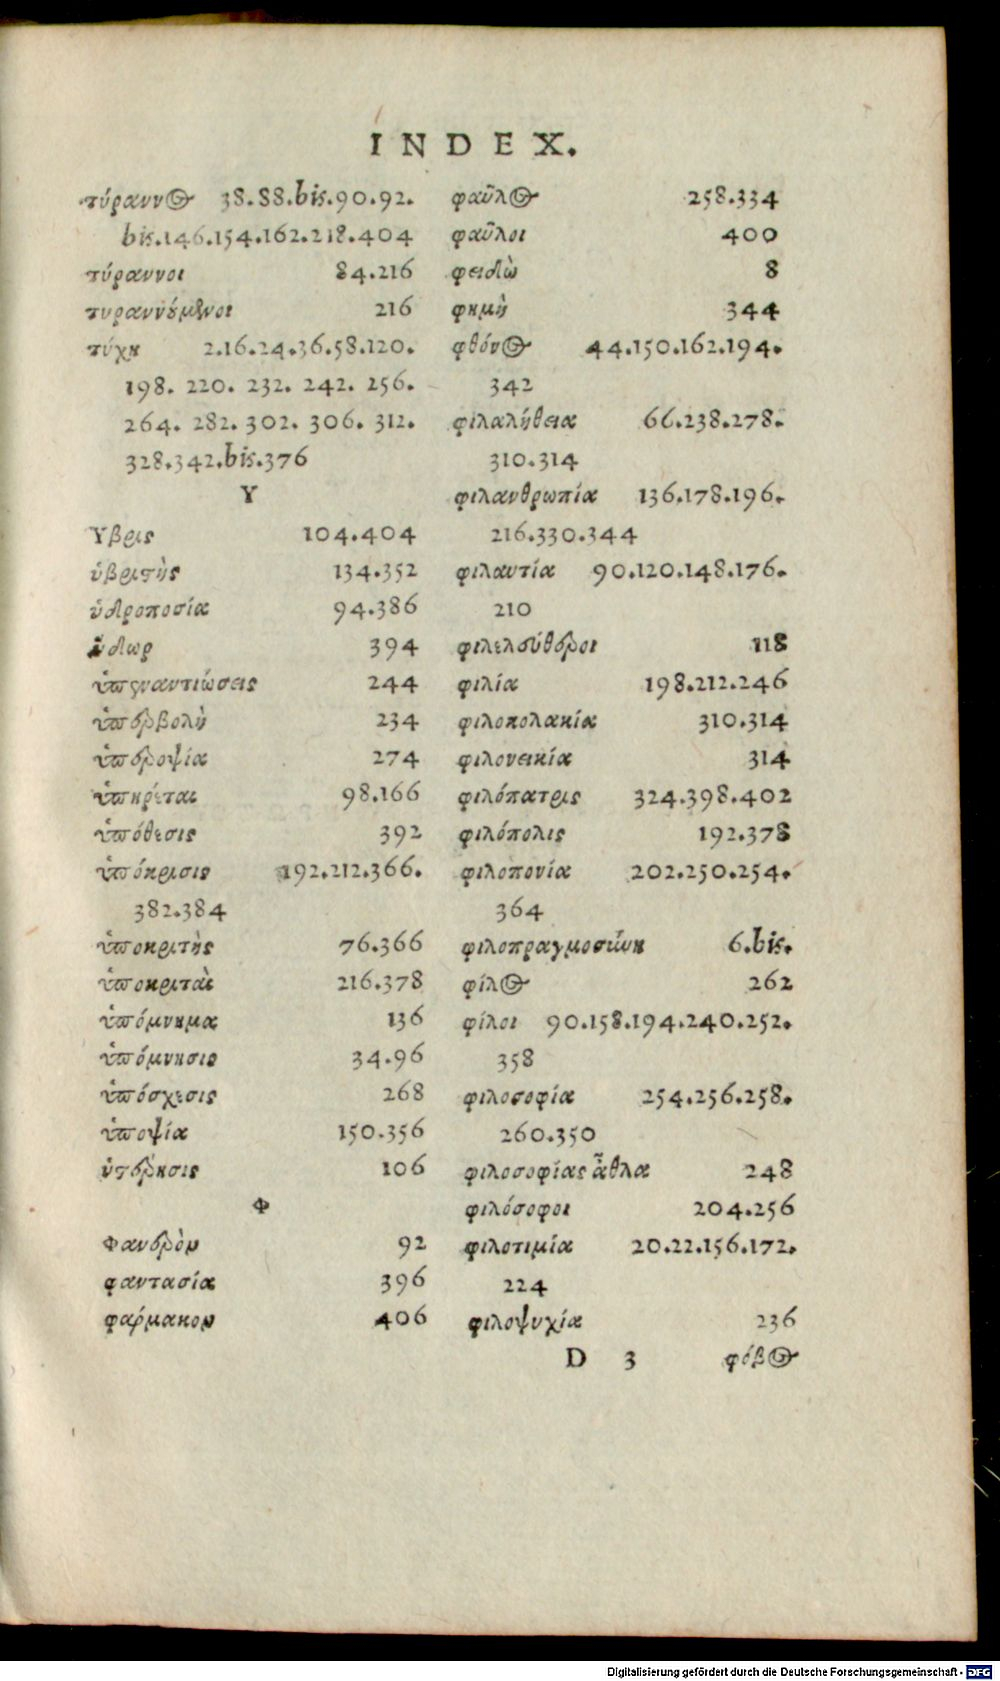 INDEX.
τύραννος 38.88.bis.90.92.
bis.146.154.162.218.404
τύραννοι 84.216
τυραννούμενοι 216
τύχη 2.16.24.36.58.120.
198. 220. 232. 242. 256.
264. 282. 302. 306. 312.
328.342.bis.376
Υ
Υβρις 104.404
ὑβριστὴς 134.352
ὑδροποσία 94.386
ὕδωρ 394
ὑπεναντιώσεις 244
ὑπερβολὴ 234
ὑπεροψία 274
ὑπηρέται 98.166
ὑπόθεσις 392
ὑπόκρισις 192.212.366.
382.384
ὑποκριτὴς 76.366
ὑποκριταὶ 216.378
ὑπόμνημα 136
ὑπόμνησις 34.96
ὑπόσχεσις 268
ὑποψία 150.356
ὑστέρησις 106
Φ
Φανερὸν 92
φαντασία 396
φαρμακον 406
φαῦλος 258.334
φαῦλοι 400
φειδὼ 8
φημὴ 344
φθόνος 44.150.162.194.
342
φιλαλήθεια 66.238.278.
310.314
φιλανθρωπία 136.178.196.
216.330.344
φιλαυτία 90.120.148.176.
210
φιλελεύθεροι 118
φιλία 198.212.246
φιλοκολακία 310.314
φιλονεικία 314
φιλόπατρις 324.398.402
φιλόπολις 192.378
φιλοπονία 202.250.254.
364
φιλοπραγμοσύνη 6.bis.
φίλος 262
φίλοι 90.158.194.240.252.
358
φιλοσοφία 254.256.258.
260.350
φιλοσοφίας ἆθλα 248
φιλόσοφοι 204.256
φιλοτιμία 20.22.156.172.
224
φιλοψυχία 236
D 3 φόβος
Digitalisierung gefördert durch die Deutsche Forschungsgemeinschaft - DFG